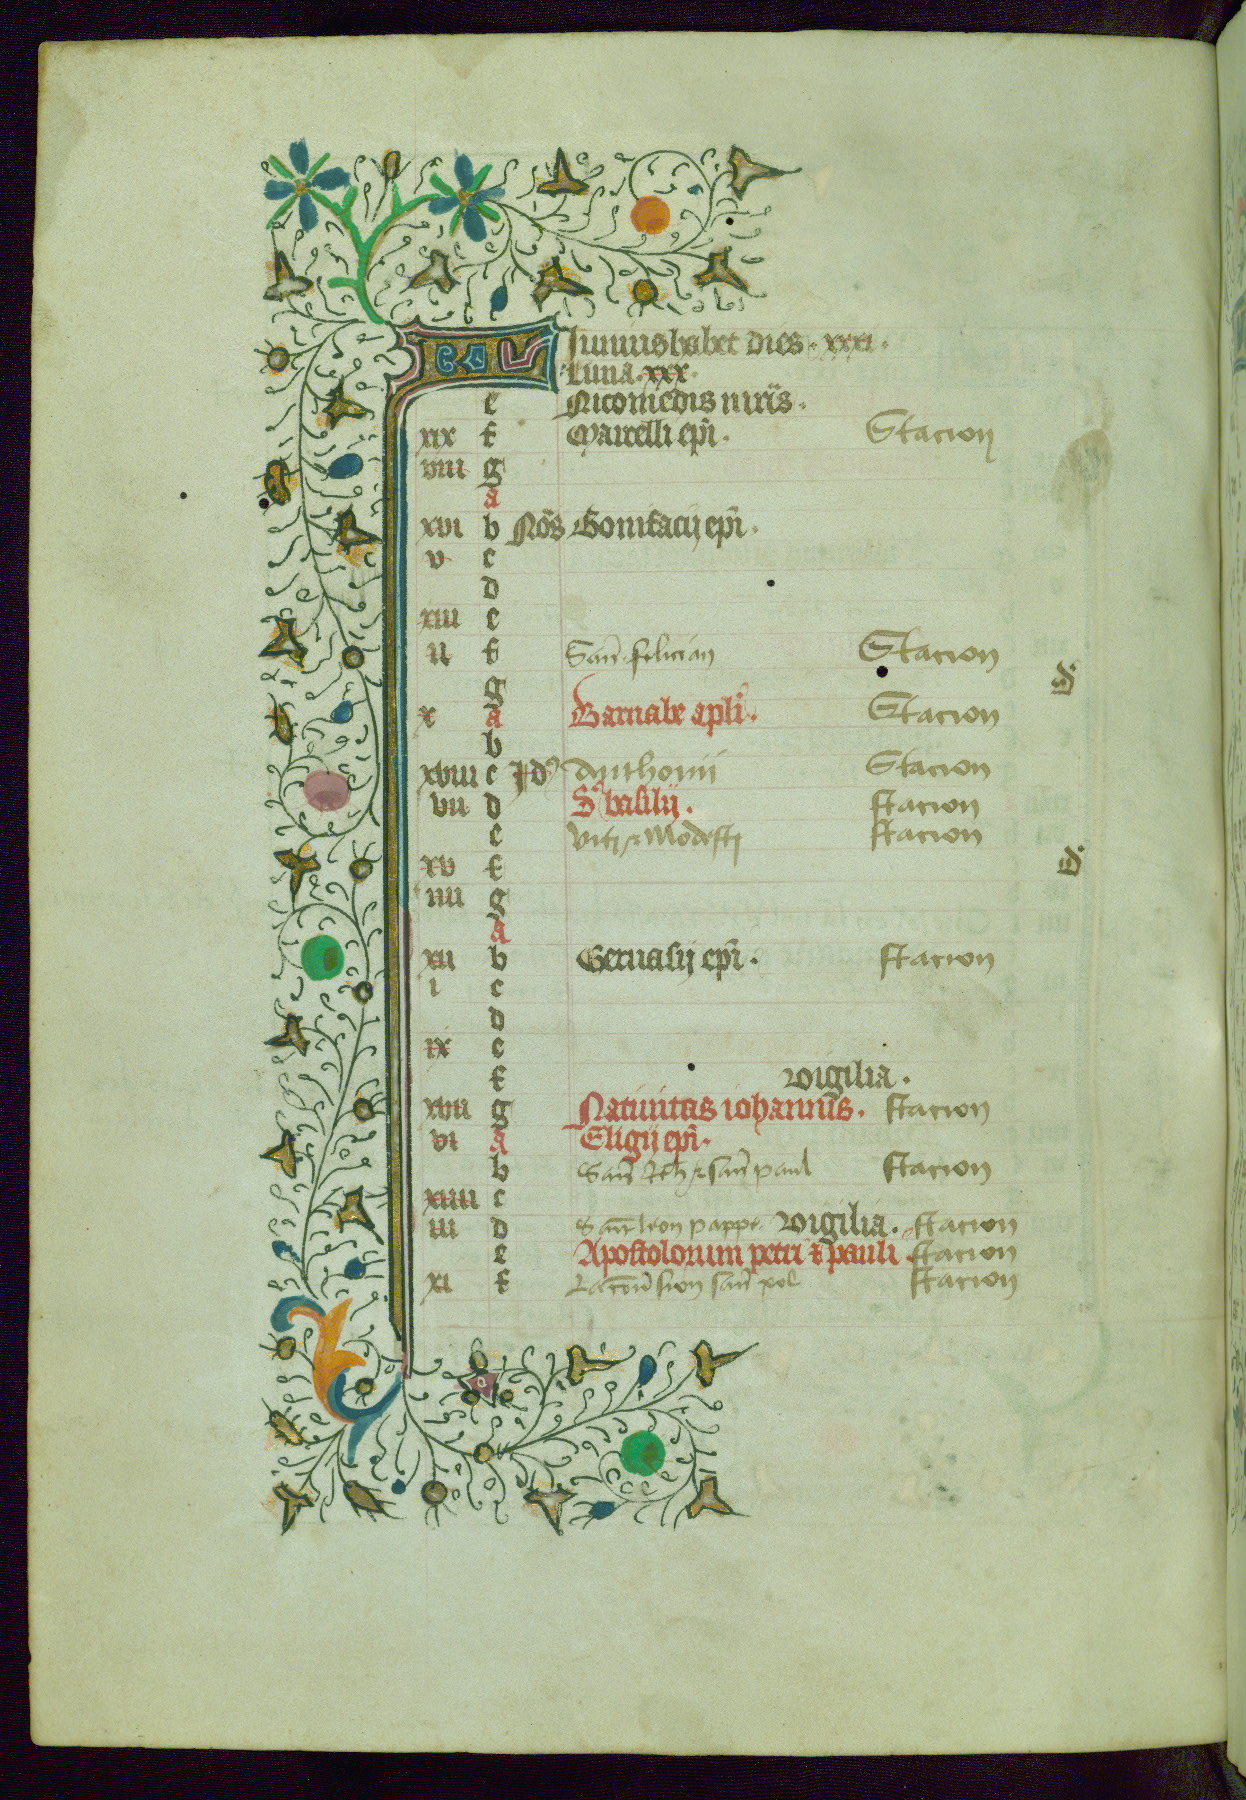 KL Junius habet dies · xxxi ·
Luna · xxx ·
e Nicomedis mr̃is ·
xix f Marcelli ep̃i · Stacion
viii g
a
xvi b Nōs Bonifacij ep̃i ·
v c
d
xiii e
ii f San̄ felician Stacion
g d
x a Barnabe apl̃i · Stacion
b
xviii c Jdꝯ Anthonii Stacion
vii d Sᵗ basilij · stacion
e viti ⁊ Modesti stacion
xv f d
iiii g
A
xii b Geruasij ep̃i · stacion
i c
d
ix e
f vigilia ·
xvii g Natiuitas iohannis · stacion
vi A Eligij ep̃i ·
b San̄ Jeh ⁊ san̄ paul stacion
xiiii c
iii d San̄ leon pappe vigilia · stacion
e Apostolorum petri ⁊ pauli · stacion
xi f san̄ pol stacion